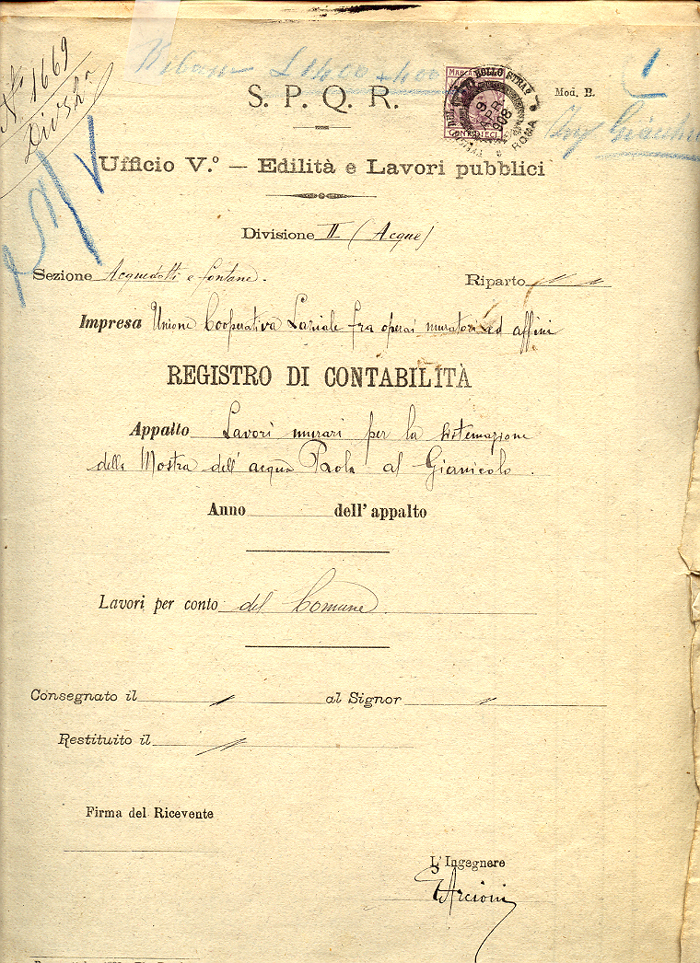 N.º 1669
Div.
S. P. Q. R.
Mod. B.
MARCA
BOLLO STRAO
9 APR 908
ROMA
CENT. DIECI
Ufficio V.º — Edilità e Lavori pubblici
Divisione II (Acque)
Sezione Acquedotti e fontane.
Riparto
Impresa Unione Cooperativa Laziale fra operai muratori ed affini
REGISTRO DI CONTABILITÀ
Appalto Lavori murari per la sistemazione
della Mostra dell'acqua Paola al Gianicolo.
Anno dell'appalto
Lavori per conto del Comune
Consegnato il al Signor
Restituito il
Firma del Ricevente
L'Ingegnere
Arcioni